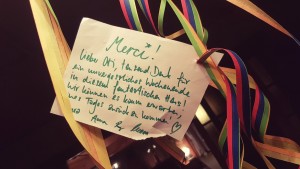 Merci!
Liebe Oti, tausend Dank für
ein unvergessliches Wochenende
in diesem fantastischen Haus!
Wir können es kaum erwarten,
nes Tages zurück kommen!
xo Anna